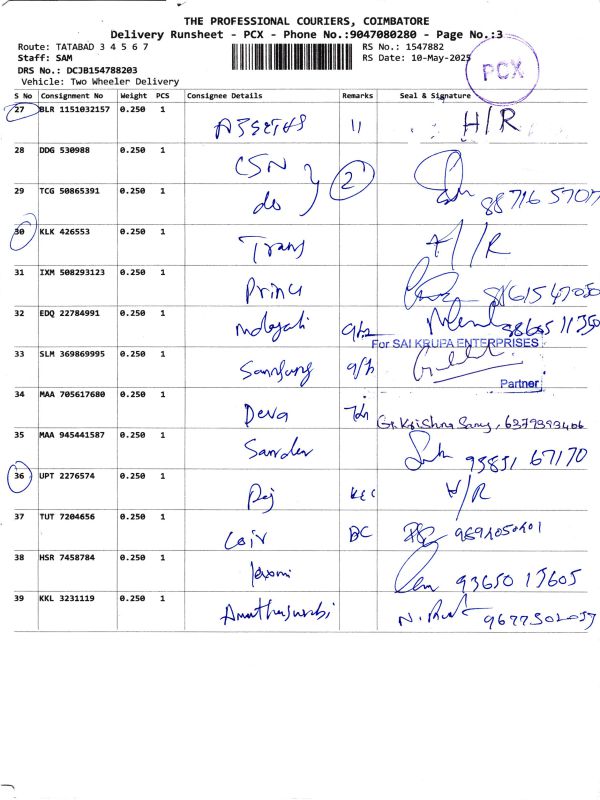 THE PROFESSIONAL COURIERS, COIMBATORE
Delivery Runsheet - PCX - Phone No.:9047080280 - Page No.:3
Route: TATABAD 3 4 5 6 7 RS No.: 1547882
Staff: SAM RS Date: 10-May-2025
PCX
DRS No.: DCJB154788203
Vehicle: Two Wheeler Delivery
S No Consignment No Weight PCS Consignee Details Remarks Seal & Signature
27 BLR 1151032157 0.250 1 11 H/R
28 DDG 530988 0.250 1 CSN 2
29 TCG 50865391 0.250 1 do
30 KLK 426553 0.250 1 Trans H/R
31 IXM 508293123 0.250 1 Prince
32 EDQ 22784991 0.250 1
For SAI KRUPA ENTERPRISES
33 SLM 369869995 0.250 1
Partner
34 MAA 705617680 0.250 1 Deva 6379393406
35 MAA 945441587 0.250 1 Sander 93831 67170
36 UPT 2276574 0.250 1 Raj H/R
37 TUT 7204656 0.250 1 Coir DC
38 HSR 7458784 0.250 1 93650 15605
39 KKL 3231119 0.250 1